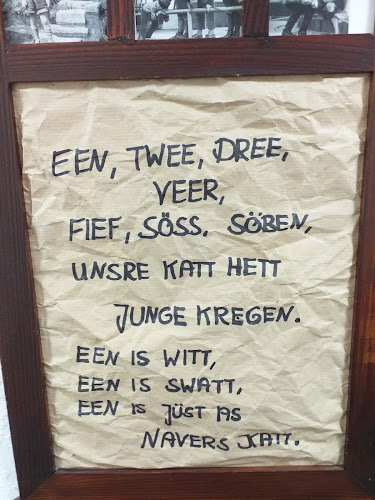 EEN, TWEE, DREE,
VEER,
FIEF, SÖSS. SÖBEN,
UNSRE KATT HETT
JUNGE KREGEN.
EEN IS WITT,
EEN IS SWATT,
EEN IS JÜST AS
NAVERS KATT.